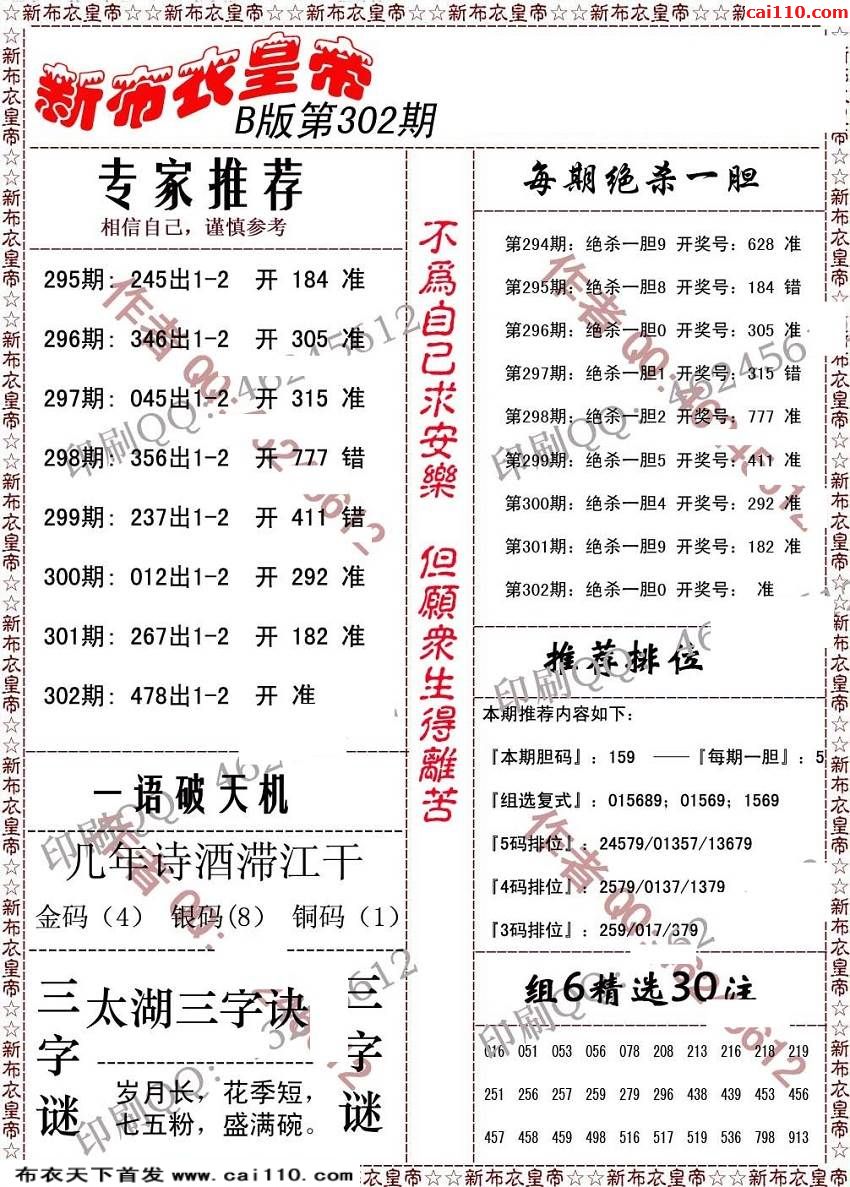 ☆☆新布衣皇帝☆☆新布衣皇帝☆☆新布衣皇帝☆☆新布衣皇帝☆☆新布衣皇帝☆☆新
cai110.com
新布衣皇帝
B版第302期
专家推荐
相信自己，谨慎参考
295期: 245出1-2 开 184 准
296期: 346出1-2 开 305 准
297期: 045出1-2 开 315 准
298期: 356出1-2 开 777 错
299期: 237出1-2 开 411 错
300期: 012出1-2 开 292 准
301期: 267出1-2 开 182 准
302期: 478出1-2 开 准
一语破天机
几年诗酒滞江干
金码（4） 银码(8) 铜码（1）
三字谜
太湖三字诀
岁月长，花季短，
七五粉，盛满碗。
三字谜
不為自己求安樂 但願衆生得離苦
每期绝杀一胆
第294期: 绝杀一胆9 开奖号: 628 准
第295期: 绝杀一胆8 开奖号: 184 错
第296期: 绝杀一胆0 开奖号: 305 准
第297期: 绝杀一胆1 开奖号: 315 错
第298期: 绝杀一胆2 开奖号: 777 准
第299期: 绝杀一胆5 开奖号: 411 准
第300期: 绝杀一胆4 开奖号: 292 准
第301期: 绝杀一胆9 开奖号: 182 准
第302期: 绝杀一胆0 开奖号: 准
推荐排位
本期推荐内容如下:
『本期胆码』: 159 ——『每期一胆』: 5
『组选复式』: 015689; 01569; 1569
『5码排位』: 24579/01357/13679
『4码排位』: 2579/0137/1379
『3码排位』: 259/017/379
组6精选30注
016 051 053 056 078 208 213 216 218 219
251 256 257 259 279 296 438 439 453 456
457 458 459 498 516 517 519 536 798 913
布衣天下首发 www.cai110.com
☆新布衣皇帝☆☆新布衣皇帝☆☆新布衣皇帝☆☆新布衣皇帝☆